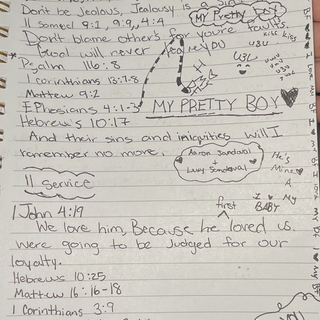 Don't be Jealous, Jealousy is a Sin
My Pretty Boy
II Samuel 9:1, 9:9, 4:4
Don't blame others for youre faults.
kiss kiss
God will never
U3U
Psalm 116:8
U3U
1 Corinthians 13:7-8
Matthew 9:2
Ephesians 4:1-3
MY PRETTY BOY
Hebrew's 10:17
And their sins and iniquities will I
remember no more.
Aaron Sandoval
+
Lucy Sandoval
He's
Mine
A
My
BABY
II Service
1 John 4:19
first
We love him, Because he loved us.
Were going to be Judged for our
loyalty.
Hebrews 10:25
Matthew 16:16-18
1 Corinthians 3:9